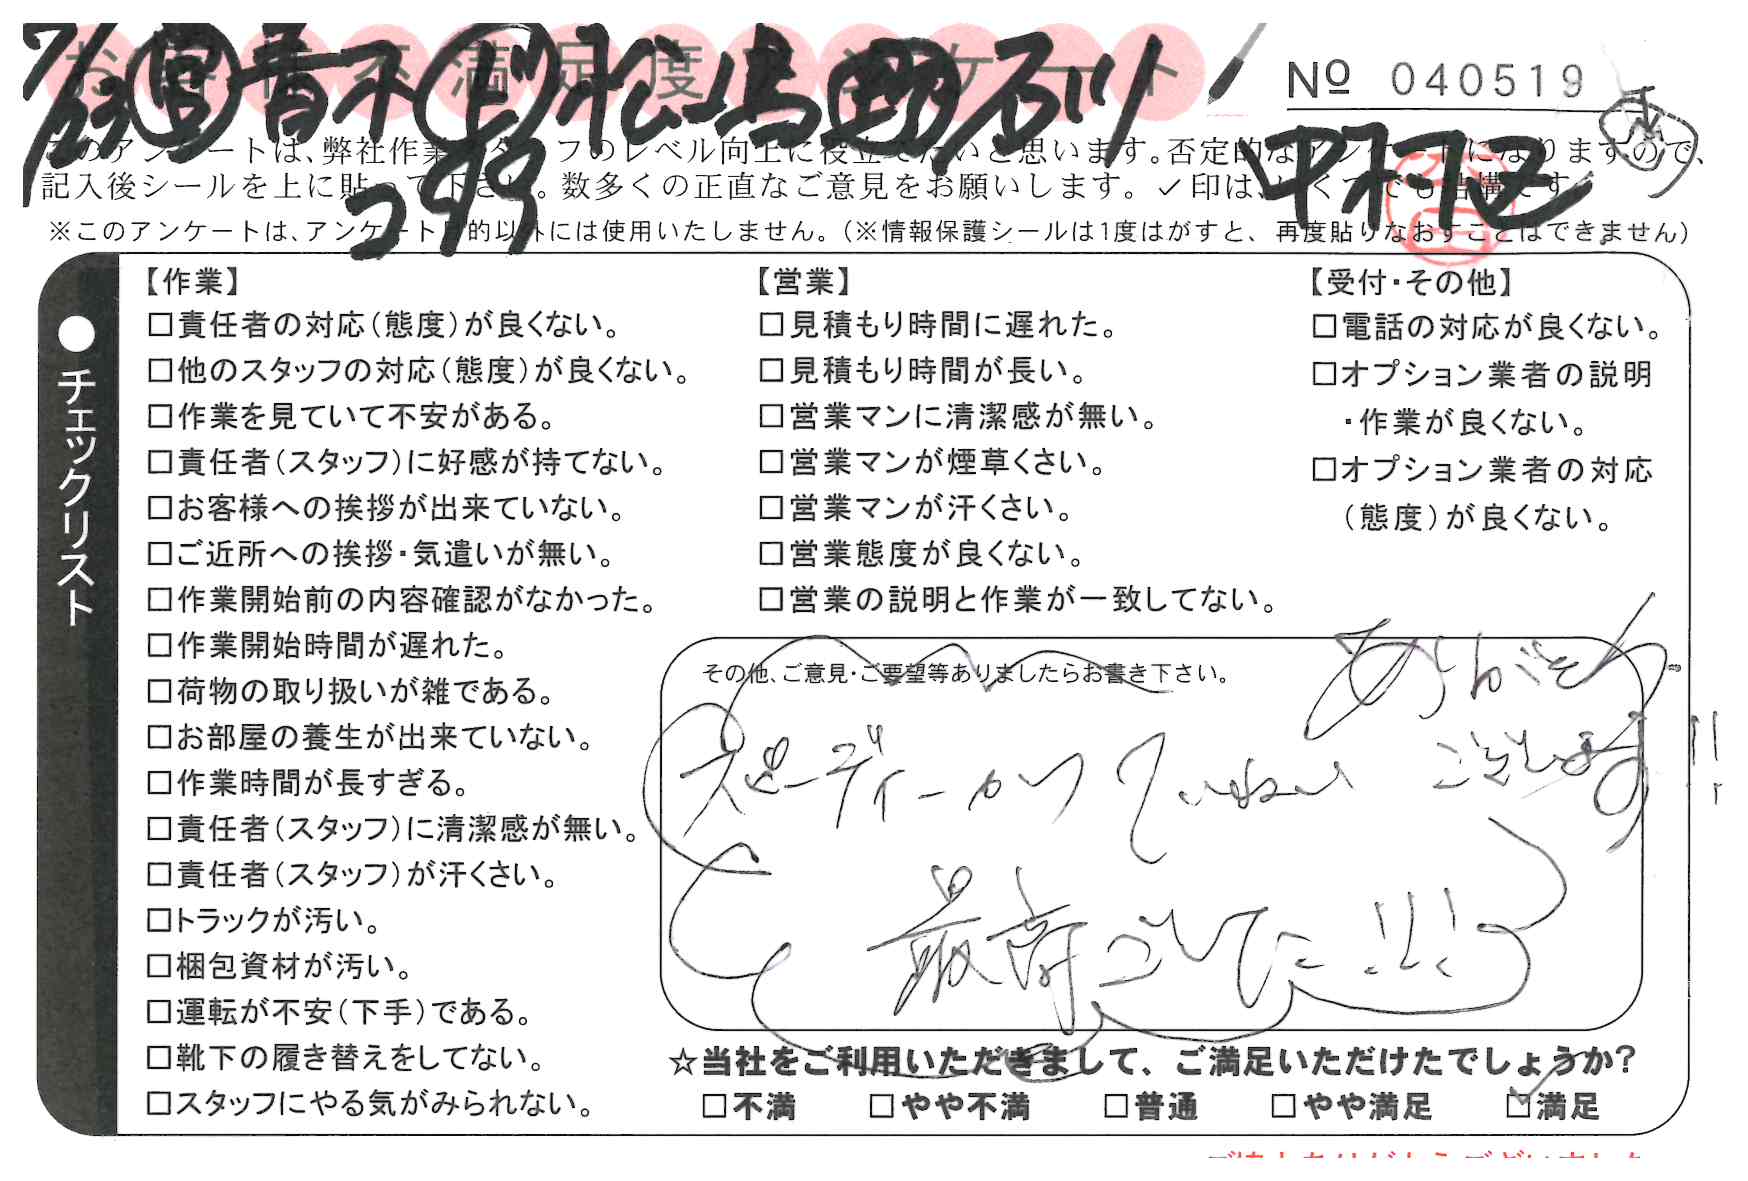 お客様不満足度アンケート
7/23 営 青木 上 松島 野 石川
コタカ
中村
No 040519
このアンケートは、弊社作業スタッフのレベル向上に役立てたいと思います。否定的なアンケートになりますので、
記入後シールを上に貼って下さい。数多くの正直なご意見をお願いします。✓印は、いくつでも結構です。
※このアンケートは、アンケート目的以外には使用いたしません。(※情報保護シールは1度はがすと、再度貼りなおすことはできません)
●チェックリスト
【作業】
□責任者の対応(態度)が良くない。
□他のスタッフの対応(態度)が良くない。
□作業を見ていて不安がある。
□責任者(スタッフ)に好感が持てない。
□お客様への挨拶が出来ていない。
□ご近所への挨拶・気遣いが無い。
□作業開始前の内容確認がなかった。
□作業開始時間が遅れた。
□荷物の取り扱いが雑である。
□お部屋の養生が出来ていない。
□作業時間が長すぎる。
□責任者(スタッフ)に清潔感が無い。
□責任者(スタッフ)が汗くさい。
□トラックが汚い。
□梱包資材が汚い。
□運転が不安(下手)である。
□靴下の履き替えをしてない。
□スタッフにやる気がみられない。
【営業】
□見積もり時間に遅れた。
□見積もり時間が長い。
□営業マンに清潔感が無い。
□営業マンが煙草くさい。
□営業マンが汗くさい。
□営業態度が良くない。
□営業の説明と作業が一致してない。
【受付・その他】
□電話の対応が良くない。
□オプション業者の説明
・作業が良くない。
□オプション業者の対応
(態度)が良くない。
その他、ご意見・ご要望等ありましたらお書き下さい。
スピーディーかつていねい
最高でした!!!
ありがとう
ございます!!
☆当社をご利用いただきまして、ご満足いただけたでしょうか?
□不満 □やや不満 □普通 □やや満足 ☑満足